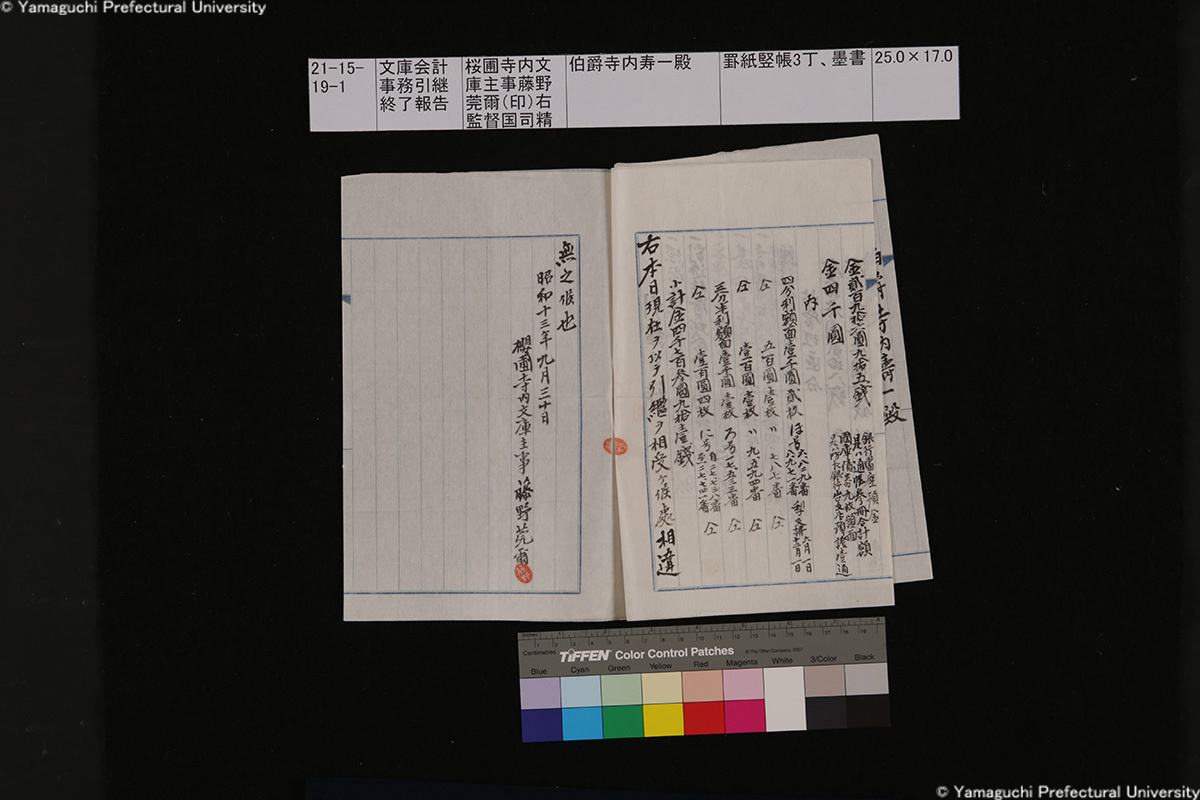 © Yamaguchi Prefectural University
21-15-
19-1
文庫会計
事務引継
終了報告
桜圃寺内文
庫主事藤野
莞爾（印）右
監督国司精
伯爵寺内寿一殿
罫紙竪帳3丁、墨書
25.0×17.0
伯爵寺内壽一殿
金貳百九拾六圓九拾五錢
銀行當座預金
通帳参冊合計額
金四千圓
内
四分利額面壹千圓 貳枚
仝 五百圓 壹枚
仝 壹百圓 壹枚 〃 九、五九四番 仝
三分半利額面壹千圓 壹枚 ろ号一七五三三番 仝
仝 壹百圓 四枚
小計金四千七百参圓九拾壹錢
右本日現在ヲ以テ引繼ヲ相受ケ候處相違
無之候也
昭和十三年九月三十日
櫻圃寺内文庫主事 藤野莞爾
Inches
Centimetres
TIFFEN Color Control Patches
© The Tiffen Company, 2007
Blue
Cyan
Green
Yellow
Red
Magenta
White
3/Color
Black
© Yamaguchi Prefectural University